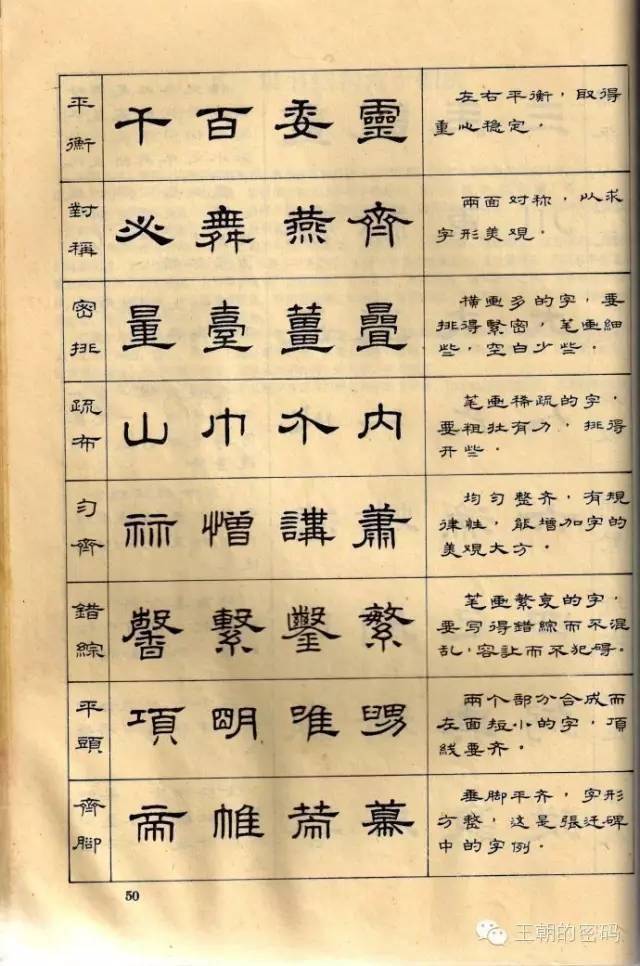 平衡
千百委靈
左右平衡，取得
重心稳定。
對稱
必舞燕齊
兩面对称，以求
字形美观。
密排
量臺薑疊
横画多的字，要
排得緊密，笔画細
些，空白少些。
疏布
山巾介内
笔画稀疏的字，
要粗壮有力，排得
开些。
匀齊
憎講蕭
均匀整齐，有規
律性，能增加字的
美观大方。
錯綜
馨繫鑿繁
笔画繁复的字，
要写得錯綜而不混
乱，容让而不犯碍。
平頭
項明唯
兩个部分合成而
左面短小的字，頂
线要齐。
齊腳
帝帷幕
垂脚平齐，字形
方整，这是張迁碑
中的字例。
50
王朝的密码